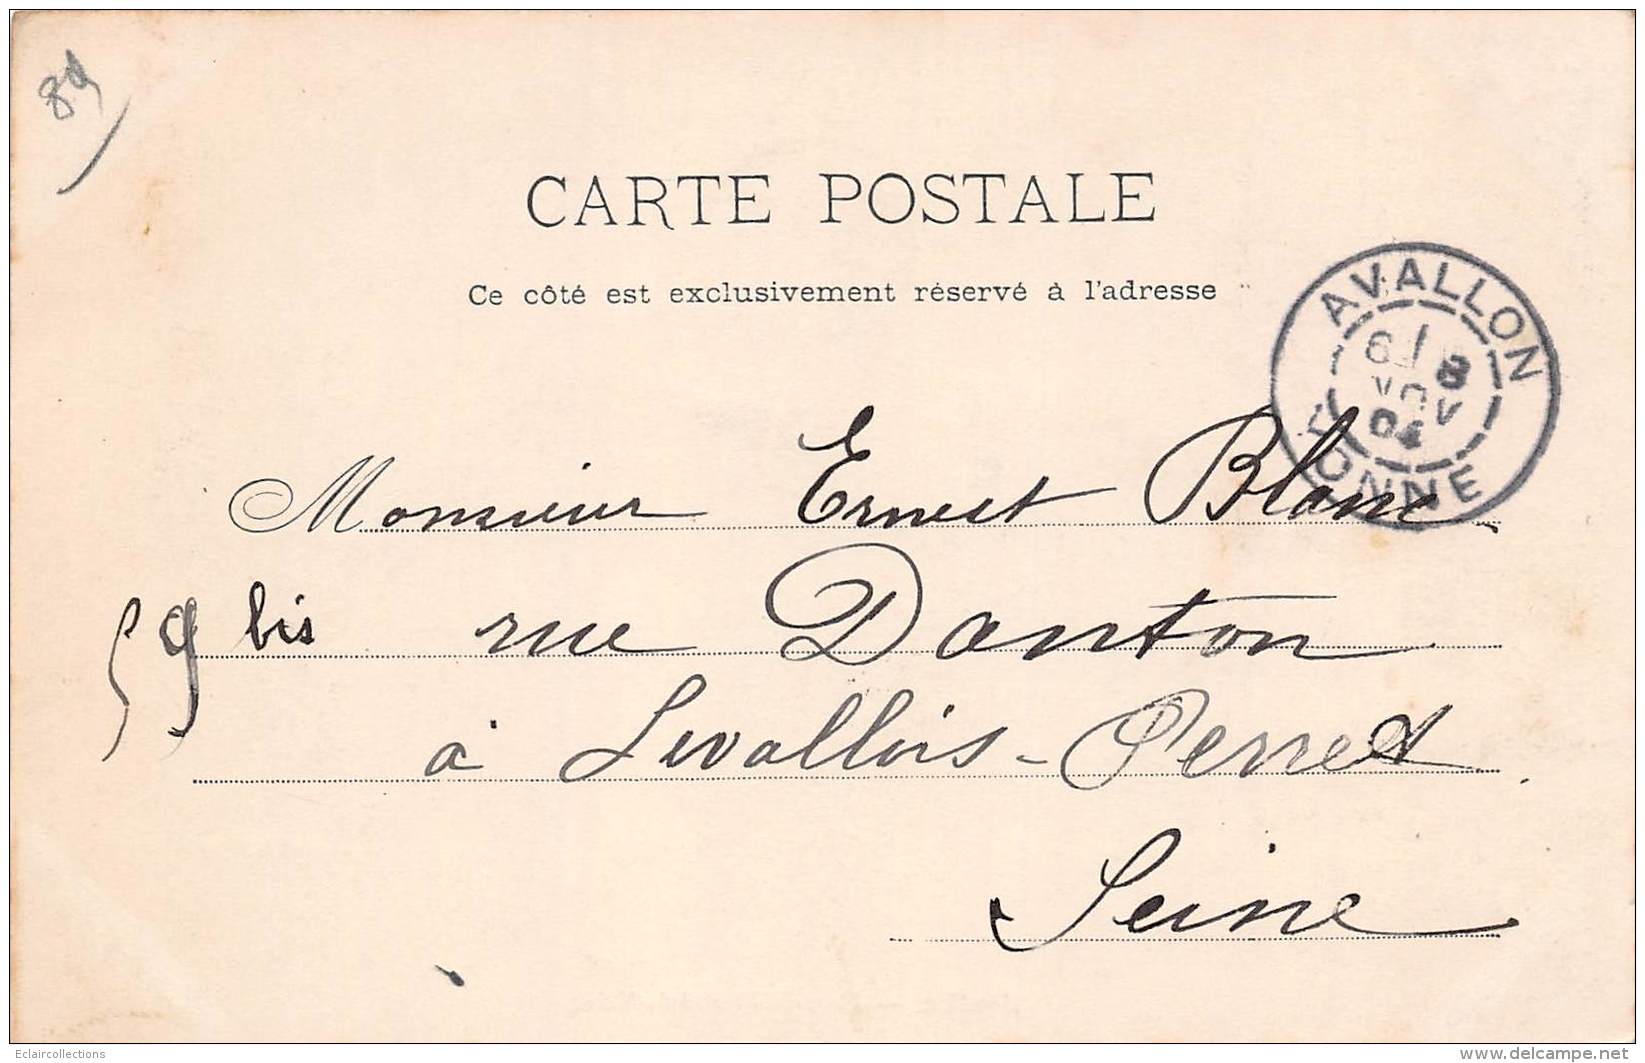 89
CARTE POSTALE
Ce côté est exclusivement réservé à l'adresse
AVALLON
8
NOV
04
YONNE
Monsieur Ernest Blanc
59 bis rue Danton
à Levallois-Perret
Seine
Eclaircollections
www.delcampe.net